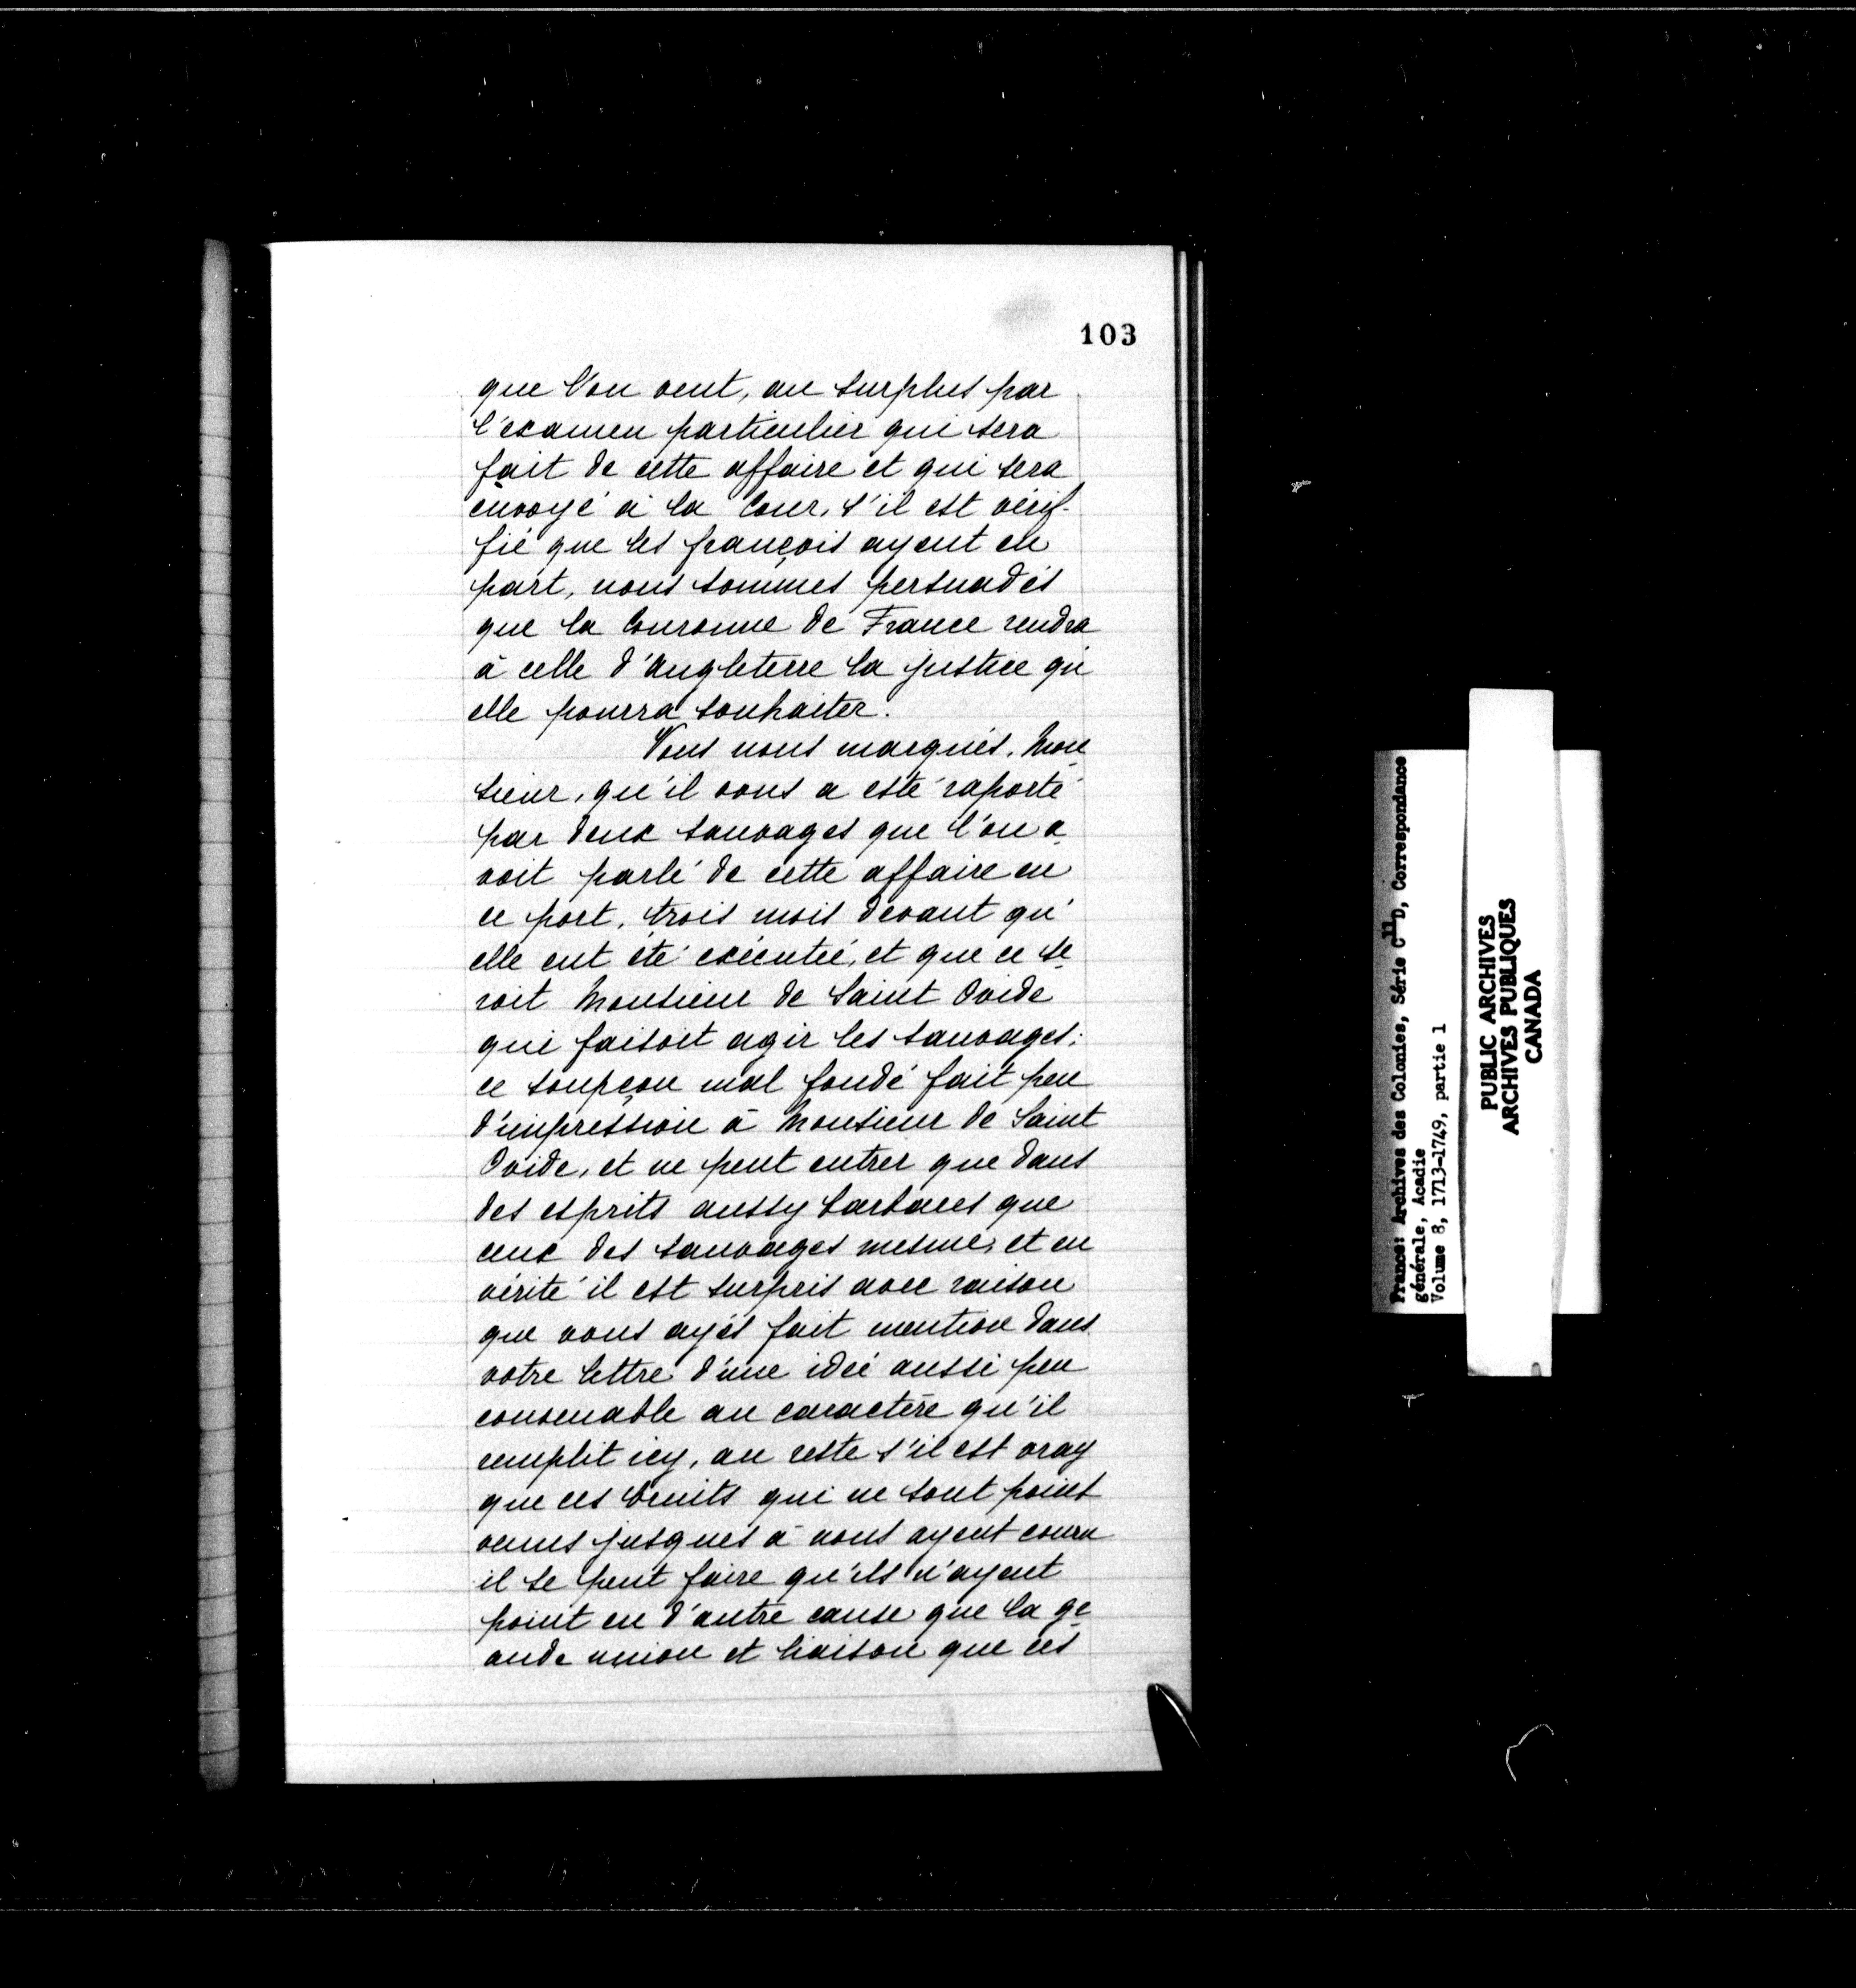 103
que l'on veut, au surplus par
l'examen particulier qui sera
fait de cette affaire et qui sera
envoyé à la Cour, s'il est vérif-
fié que les françois ayent eu
part, nous sommes persuadés
que la Couronne de France rendra
à celle d'Angleterre la justice qu'
elle pourra souhaiter.
Vous nous marqués, Mon
sieur, qu'il vous a esté raporté
par deux sauvages que l'on a
voit parlé de cette affaire en
ce port, trois mois devant qu'
elle eut été exécutée, et que ce se
roit Monsieur de Saint Ovide
qui faisoit agir les sauvages;
ce soupçon mal fondé fait peu
d'impression à Monsieur de Saint
Ovide, et ne peut entrer que dans
des esprits aussy barbares que
ceux des sauvages mesme, et en
vérité il est surpris avec raison
que vous ayés fait mention dans
votre lettre d'une idée aussi peu
convenable au caractère qu'il
remplit icy, au reste s'il est vray
que ces bruits qui ne sont point
venus jusques à nous ayent couru
il se peut faire qu'ils n'ayent
point eu d'autre cause que la gr
ande union et liaison que ces
France: Archives des Colonies, Série C11D, Correspondance
générale, Acadie
Volume 8, 1713-1749, partie 1
PUBLIC ARCHIVES
ARCHIVES PUBLIQUES
CANADA